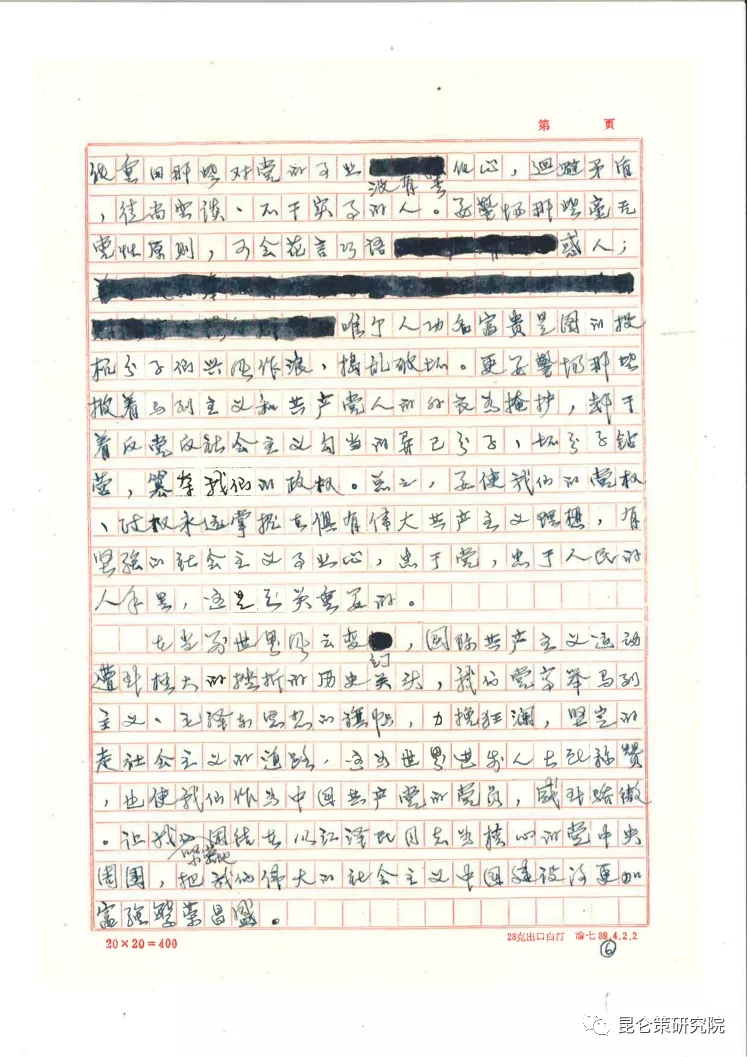 第 页
重用那些对党的事业没有责任心，迴避矛盾
，徒尚空谈、不干实事的人。要警惕那些毫无
党性原则，只会花言巧语惑人；
唯个人功名富贵是图的投
机分子们兴风作浪，捣乱破坏。更要警惕那些
披着马列主义和共产党人的外衣为掩护，却干
着反党反社会主义勾当的异己分子、坏分子钻
营，篡夺我们的政权。总之，要使我们的党权
、政权永远掌握在俱有伟大共产主义理想，有
坚强的社会主义事业心，忠于党，忠于人民的
人手里，这是至关重要的。
在当前世界风云变幻，国际共产主义运动
遭到极大的挫折的历史关头，我们党高举马列
主义、毛泽东思想的旗帜，力挽狂澜，坚定的
走社会主义的道路，这为世界进步人士所称赞
，也使我们作为中国共产党的党员，感到骄傲
。让我们紧密地团结在以江泽民同志为核心的党中央
周围，把我们伟大的社会主义中国建设得更加
富强繁荣昌盛。
20×20=400
28克出口白打 渝七 89.4.2.2
⑥
昆仑策研究院